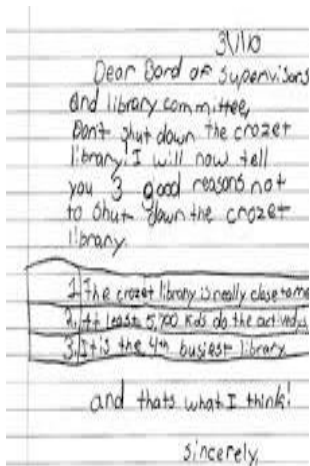 3/1/10
Dear Bord of Supervisors
and library committee,
Don't shut down the crozet
library. I will now tell
you 3 good reasons not
to shut down the crozet
library.
1. The crozet library is really close to me
2. At least 5,700 kids do the activedys
3. It is the 4th busiest library
and thats what I think!
sincerely,